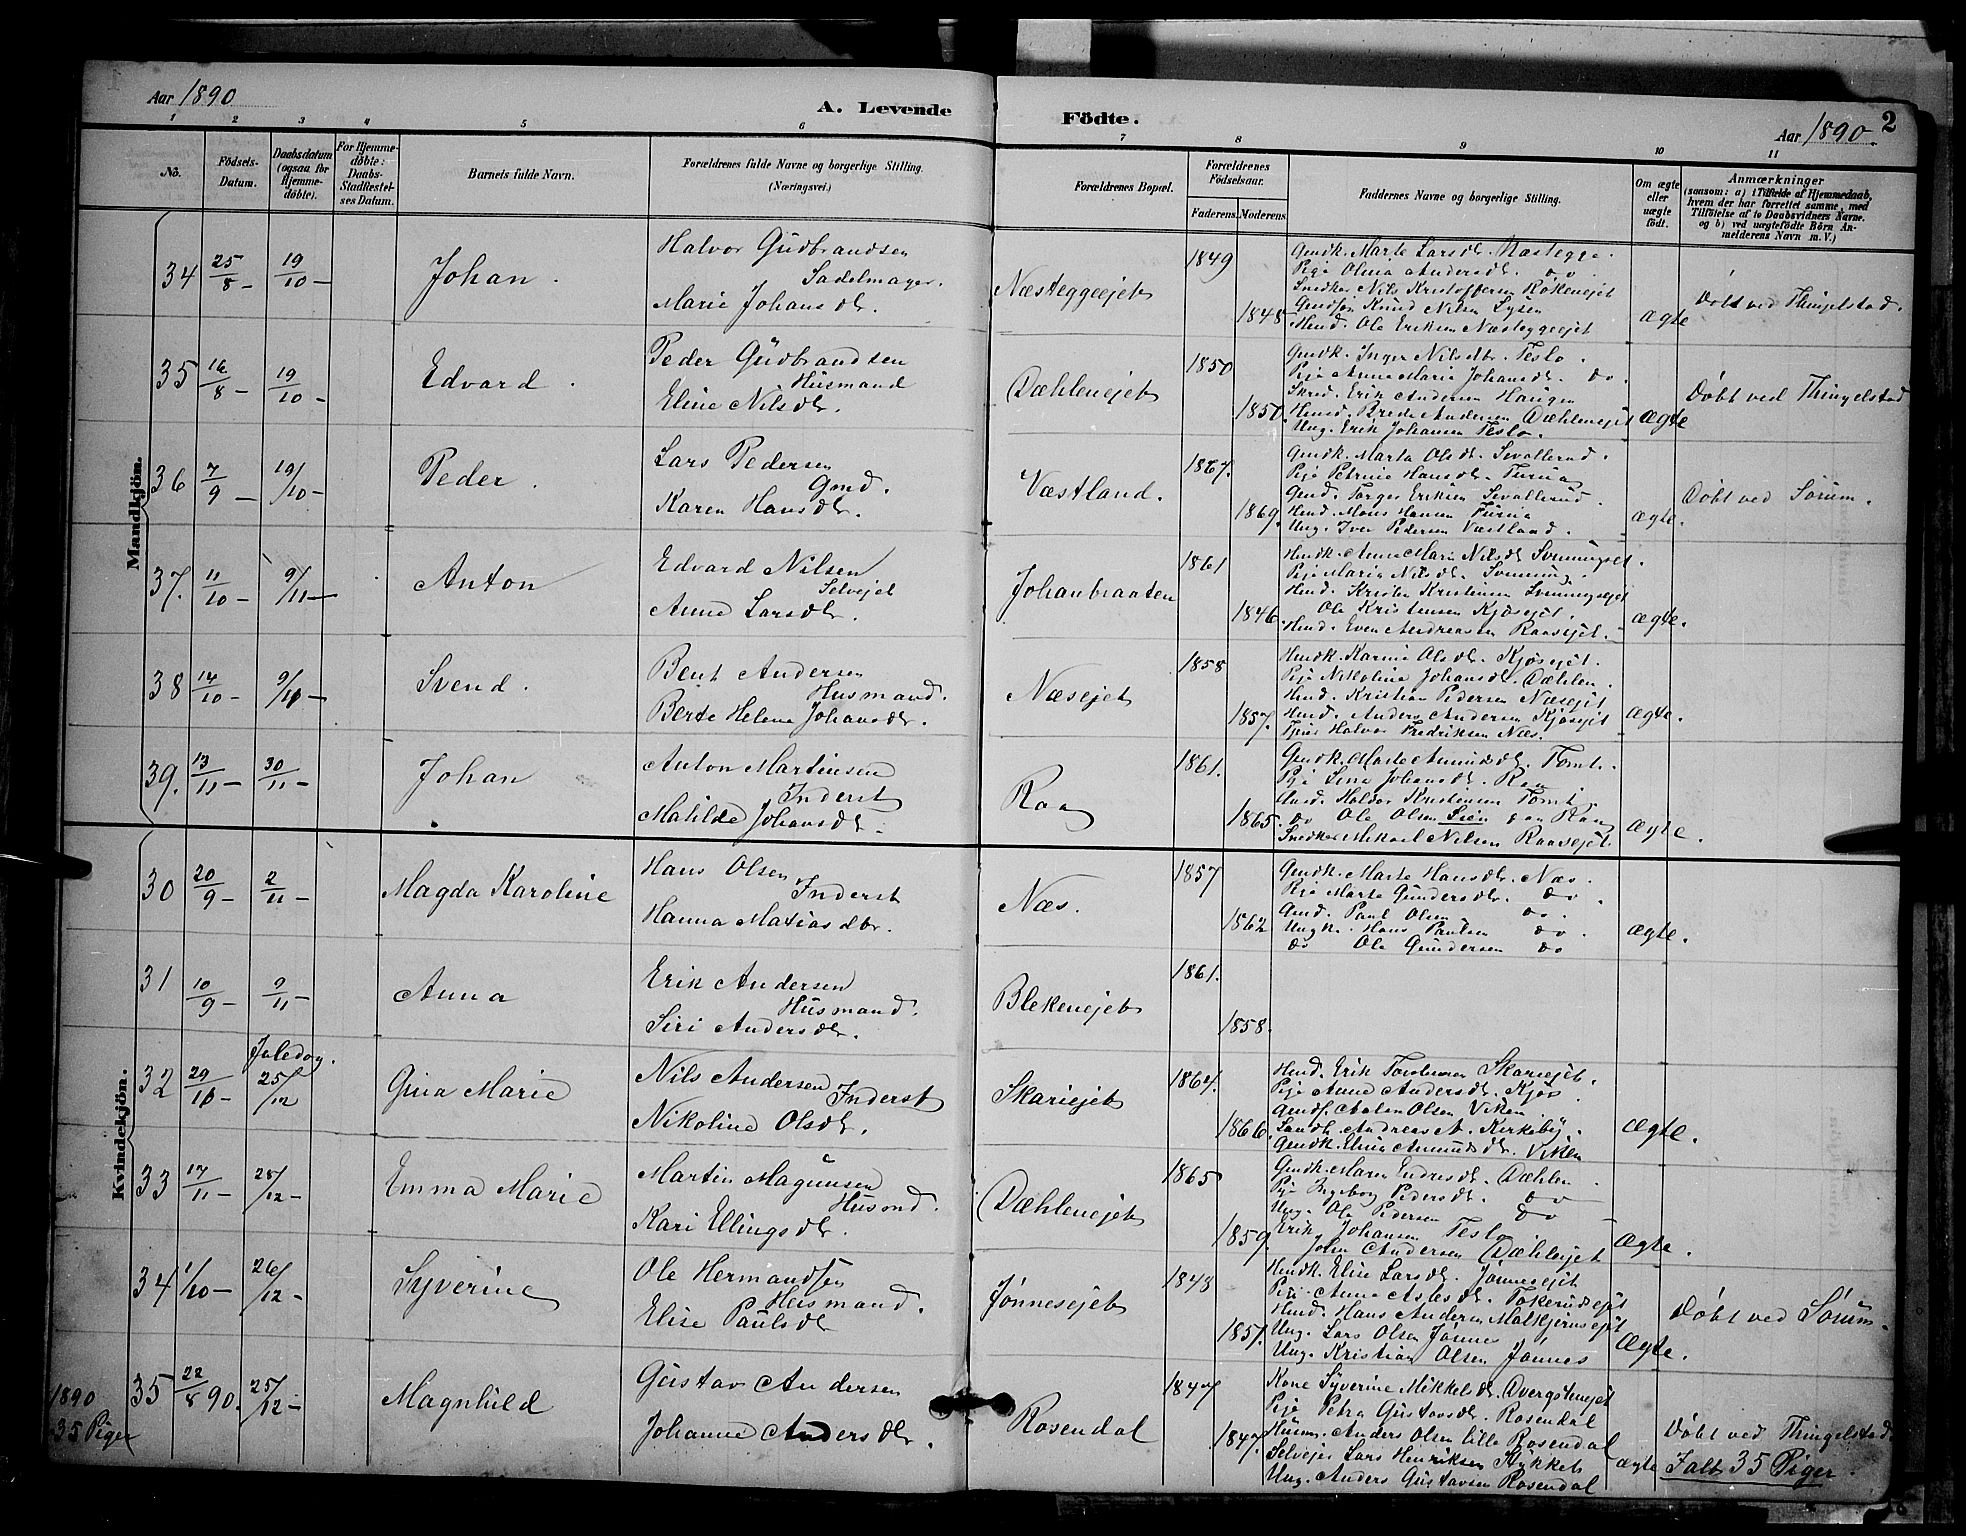 Aar 1890
A. Levende Födte.
Aar 1890. 2
1 2 3 4 5 6 7 8 9 10 11
No.
Födsels-Datum.
Daabsdatum (ogsaa for Hjemmedøbte).
For Hjemmedøbte: Daabs-Stadfæstelses Datum.
Barnets fulde Navn.
Forældrenes fulde Navne og borgerlige Stilling. (Næringsvei.)
Forældrenes Bopæl.
Forældrenes Födselsaar.
Faderens. Moderens.
Faddernes Navne og borgerlige Stilling.
Om ægte eller uægte födt.
Anmærkninger
(saasom: a) i Tilfælde af Hjemmedaab,
hvem der har forrettet samme, med
Tilföielse af to Daabsvidners Navne,
og b) ved uægtefödte Börn An-
melderens Navn m. V.)
Mandkjön.
34 25/8 - 19/10 - Johan.
Halvor Gudbrandsen
Sadelmager.
Marie Johansdr.
Næsteggeejet 1849 1848
Gmdk. Marte Larsdr. Næstegge.
Pige Olina Andersdr. do
Snedker Nils Kristoffersen Røkenejet
Gmdsøn Knud Nilsen Lysen
Hmd. Ole Eriksen Næsteggeejet
ægte
Døbt ved Thingelstad.
35 16/8 - 19/10 - Edvard.
Peder Gudbrandsen
Husmand
Eline Nilsdr.
Dæhlenejet 1850 1850
Gmdk. Inger Nilsdtr. Teslo.
Pige Anne Marie Johansdr. do.
Skred. Erik Andersen Haugen
Husd. Brede Andersen Dæhlenejet
Ung. Erik Johansen Teslo.
ægte
Døbt ved Thingelstad
36 7/9 - 19/10 - Peder.
Lars Pedersen
Gmd.
Karen Hansdr.
Væstland. 1867. 1869.
Gmdk. Marta Olsdr. Sevallerud.
Pige Petrine Hansdr.
Gmd. Torger Eriksen Sevallerud.
Hmd. Mons Hansen
Ung. Iver Pedersen Væstland.
ægte.
Døbt ved Sørum.
37. 11/10 - 9/11 - Anton
Edvard Nilsen
Selvejet
Anne Larsdr.
Johanbraaten 1861 1846
Hmdk. Anne Marie Nilsdr.
Pige Maria Nilsdr.
Hmd. Kristen Kristensen
Ole Kristensen Kjøsejet.
Hmd. Even Andreassen Raasejet.
ægte.
38 14/10 - 9/11 - Svend.
Bent Andersen
Husmand.
Berte Helene Johansdr.
Næsejet 1858 1857.
Hmdk. Karine Olsdr. Kjøsejet.
Pige Nikolina Johansdr. Dæhlen.
Hmd. Kristian Pedersen Næsejet
Hmd. Anders Andersen Kjøsejet
Tjener Halvor Fredriksen Næs.
ægte.
39. 13/11 - 30/11 - Johan
Anton Martinsen
Inderst
Matilde Johansdr.
Raa 1861. 1865.
Gmdk. Marte Amundsdr. Tomt.
Pige Lina Johansdr. Raa
Halvor Kristensen Tomt.
do Ole Olsen Lien Raa
Snedker Mikael Nilsen Raasejet.
ægte.
Kvindekjön.
30 20/9 - 2/11 - Magda Karoline
Hans Olsen
Inderst
Hanna Matiasdtr.
Næs. 1857 1862
Gmdk. Marte Hansdr. Næs.
Pige Marte Gundersdr. do.
Gmd. Paul Olsen do.
Ungk. Hans Paulsen do.
do Ole Gundersen do
ægte.
31 10/9 - 9/11 - Anna
Erik Andersen
Husmand.
Siri Andersdr.
Blekenejet 1861. 1858.
32 29/10 - Juledag. 25/12 Gina Marie
Nils Andersen
Inderst
Nikoline Olsdr.
Skariejet 1864. 1866.
Hmd. Erik Skariejet.
Pige Anne Andersdr. Kjøs.
Gmdf. Olsen Viken
Andreas A. Kirkeby.
Gmdk. Elina Amundsdr. Viken
ægte.
33 17/11 - 25/12 - Emma Marie
Martin Magnusen
Husmd.
Kari Ellingsdr.
Dæhlenejet 1865 1859.
Gmdk. Maren Endresdr. Dæhlen.
Pige Ingeborg Pedersdr. do
Ung. Ole Pedersen do
Erik Johansen Teslo
John Andersen Dæhlejet
Ægte.
34 1/10 - 26/12 - Syverine
Ole Hermandsen
Husmand.
Elise Paulsdr
Jønnesejet 1843 1851.
Hmdk. Elise Larsdr. Jønnesejet
Pige Anne Aslesdr.
Hmd. Hans Andersen
Ung. Lars Olsen Jønnes
Ung. Kristian Olsen Jønnes
Ægte.
Døbt ved Sørum.
35 22/8 90. 25/12 - Magnhild
Gustav Andersen
Johanne Andersdr.
Rosendal 1847 1847.
Kone Syverine Mikkelsdr.
Pige Petra Gustavsdr. Rosendal
Husm. Anders Olsen lille Rosendal
Selvejer Lars Henriksen Stykket
Ung. Anders Gustavsen Rosendal
ægte
Døbt ved Thingelstad
Ialt 35 Piger.
1890
35 Piger